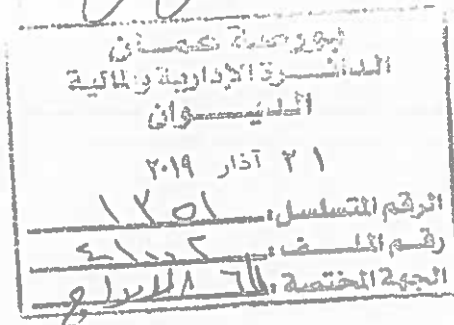 بورصة عمان
الدائرة الإدارية والمالية
الديوان
٣١ آذار ٢٠١٩
الرقم المتسلسل: ١٣٥١
رقم الملف: ٤١٠٠٢
الجهة المختصة: